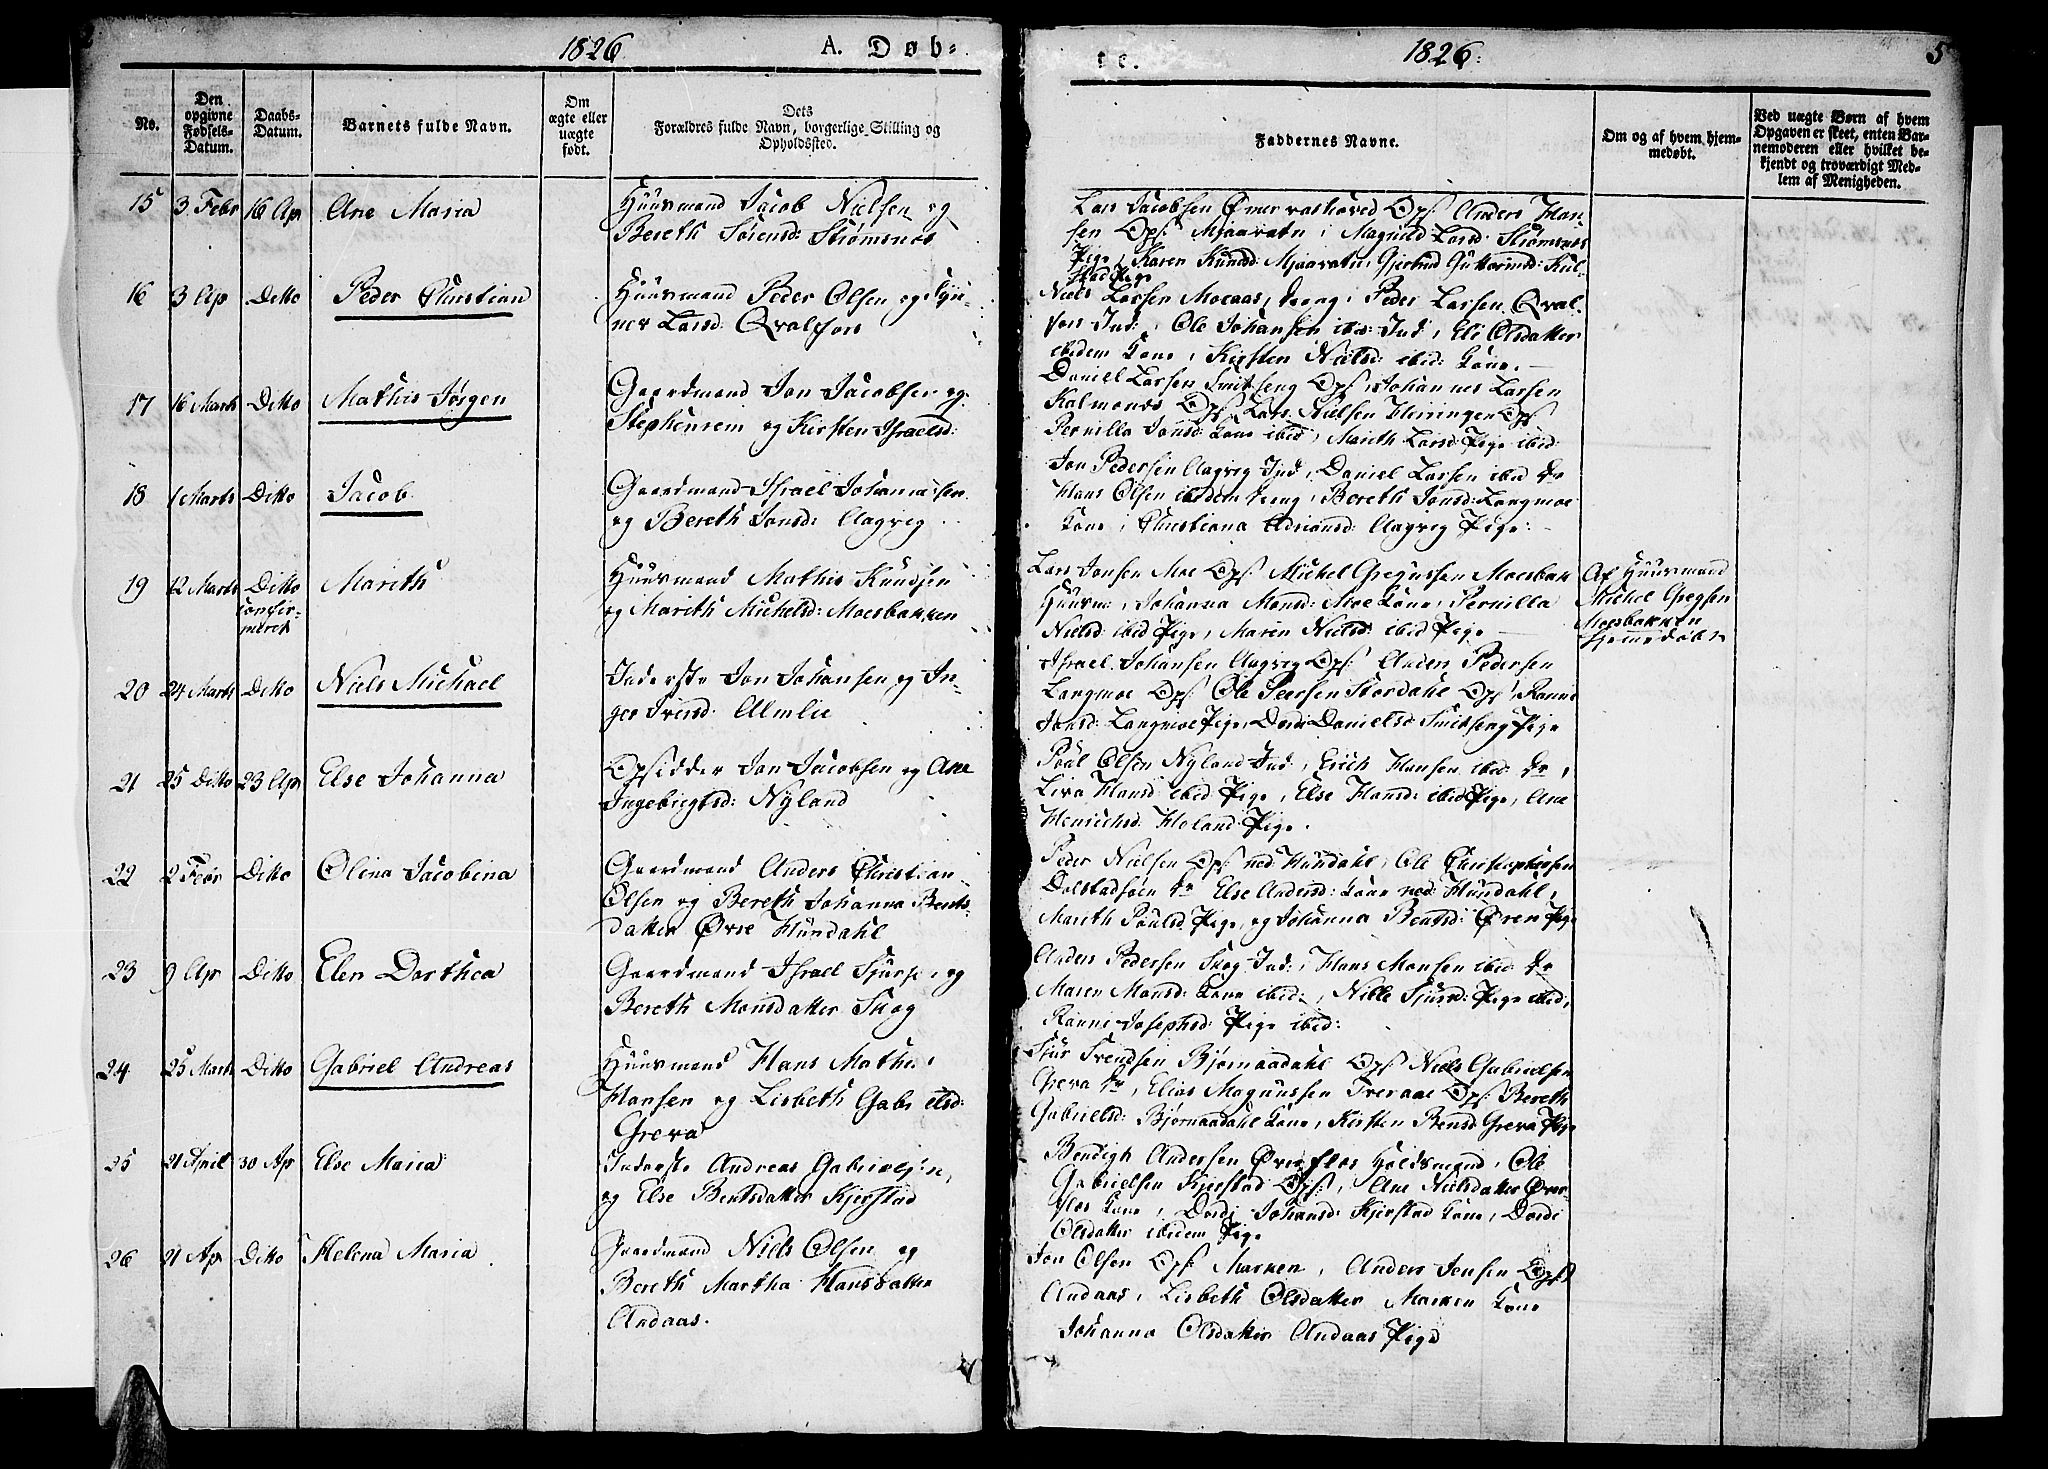 1826. A. Døb-
No.
Den opgivne Fødsels-Datum.
Daabs-Datum.
Barnets fulde Navn.
Om ægte eller uægte født.
Dets Forældres fulde Navn, borgerlige Stilling og Opholdssted.
15 3 Febr 16 Ap Ane Maria
Huusmand Jacob Nielsen og
Bereth Sörensd: Strømsnes
16 3 Ap Ditto Peder Christian
Huusmand Peder Olsen og
Larsd: Qvalfors
17 16 Marts Ditto Mathis Jørgen
Gaardmand Jon Jacobsen og
Stephensrem og Kirsten Israelsd:
18 1 Marts Ditto Jacob
Gaardmand Israel Johannessen
og Bereth Jonsd: Aagveg
19 12 Marts Ditto confirmeret Marith
Huusmand Mathis Knudsen
og Marith Michelsd: Moesbakken
20 24 Marts Ditto Niels Michael
Inderste Jon Johansen og In-
ger Almlie
21 25 Ditto 23 Ap Else Johanna
Opsidder Jon Jacobsen og Ane
Ingebrigtsd: Nyland
22 2 Febr Ditto Olina Jacobina
Gaardmand Anders Christian
Olsen og Bereth Johanna Bents-
datter Øvre Hundahl
23 9 Ap Ditto Elen Dorthea
Gaardmand Israel og
Bereth Monsdatter Skog
24 25 Marts Ditto Gabriel Andreas
Huusmand Hans Mathis
Hansen og Lisbeth Gabrielsd:
Greva
25 21 April 30 Ap Else Maria
Inderste Andreas Gabrielsen,
og Else Bentsdatter Kjerstad
26 21 Ap Ditto Helena Maria
Gaardmand Niels Olsen og
Bereth Martha Hansdatter
Andaas.
te. 1826. 5
Faddernes Navne.
Om og af hvem hjem-
medøbt.
Ved uægte Børn af hvem
Opgaven er skeet, enten Bar-
nemoderen eller hvilket be-
kjendt og troværdigt Med-
lem af Menigheden.
Lars Jacobsen Ops: Anders Han-
sen Ops: Mjaavatn, Magnild Larsd: Strømsnes
Pige, Karen Knudsd: Mjaavatn, Gjertrud Guttormsd: Kul-
stad Pige
Niels Larsen Moeaas, Peder Larsen Qval-
fors Ind:, Ole Johansen ibid: Ind, Eli Olsdatter
ibidem Kone, Kirsten Nielsd: ibid: Kone.
Daniel Larsen Smitseng Ops, Johannes Larsen
Kalmones Ops, Lars Nielsen Heiringen Ops
Pernilla Jonsd: Kone ibid, Marith Larsd: Pige ibid:
Jon Pedersen Aagveg Ind, Daniel Larsen ibid Do
Hans Olsen ibidem, Bereth Jonsd: Langmoe
Kone, Christiana Adriansd: Aagveg Pige:
Lars Jonsen Moe Ops: Michel Gregussen Moesbak
Huusm:, Johanna Monsd: Moe Kone, Pernilla
Nielsd: ibid Pige, Maren Nielsd: ibid Pige
Af Huusmand
Michel Gregsen
Moesbakken
hjemmedøbt
Israel Johansen Aagveg Ops: Anders Pedersen
Langmoe Ops Ole Peersen Stordahl Ops, Ranni
Jonsd: Langmoe Pige, Danielsd: Smitseng Pige
Poul Olsen Nyland Ind, Erich Hansen ibid: Do,
Liva Hansd: ibid Pige, Else Hansd: ibid Pige, Ane
Henrichsd: Høland Pige.
Peder Nielsen Ops: ned: Hundahl, Ole Christophersen
Dolstadsøen Do Else Andersd: Kone ned: Hundahl,
Marith Poulsd Pige, og Johanna Bentsd: Øren Pige
Anders Pedersen Skog Ind:, Hans Monsen ibid Do
Maren Monsd: Kone ibid:, Nille Sjursd: Pige ibid,
Ranni Josephsd: Pige ibid:
Sjur Svendsen Bjørnaadahl Ops Niels Gabrielsen
Greva Do, Elias Magnussen Tveraae Ops: Bereth
Gabrielsd: Bjørnaadahl Kone, Kirsten Greva Pige
Bendigt Andersen Ole
Gabrielsen Kjerstad Ops:, Ane Nielsdatter
Kone, Johansd: Kjerstad Kone,
Olsdatter ibidem Pige
Jon Olsen Ops: Marken, Anders Jensen Ops
Andaas, Lisbeth Olsdatter Marken Kone
Johanna Olsdatter Andaas Pige